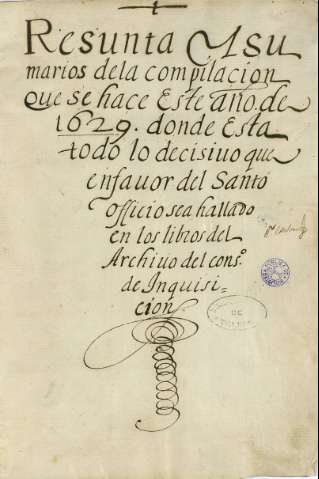 Resunta Ysu
marios dela compilacion
que se hace Este año de
1629. donde Esta
todo lo decisiuo que
enfauor del Santo
officio sea hallado
en los libros del
Archiuo del cons.º
de Inquisi=
cion
DE